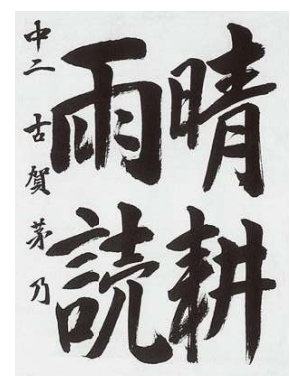 晴耕
雨読
中二 古賀 茅乃